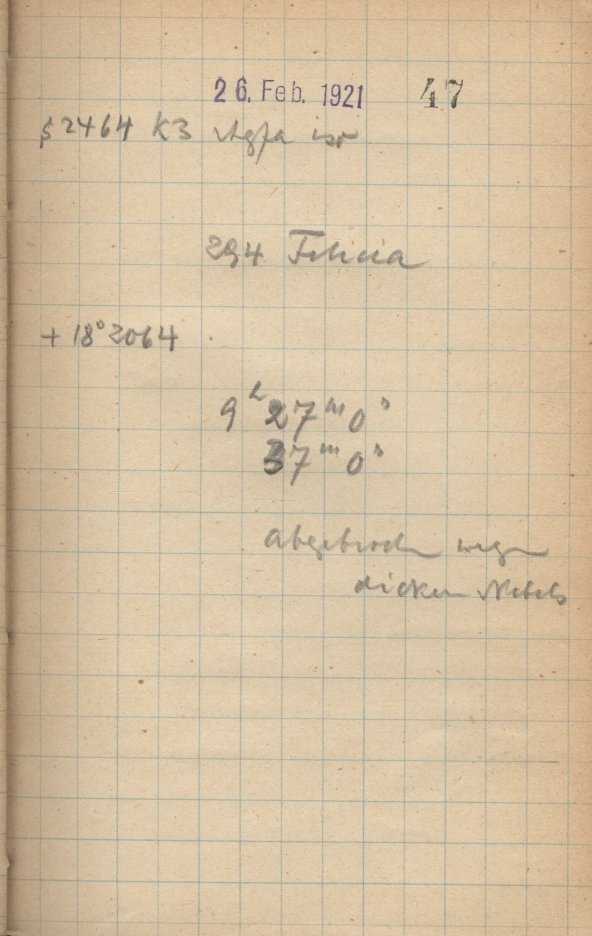 26. Feb. 1921 47
S 2464 K3 Agfa iso
294 Felicia
+ 18° 2064
9ʰ 27ᵐ 0ˢ
37ᵐ 0ˢ
abgebrochen wegen
dicken Nebels